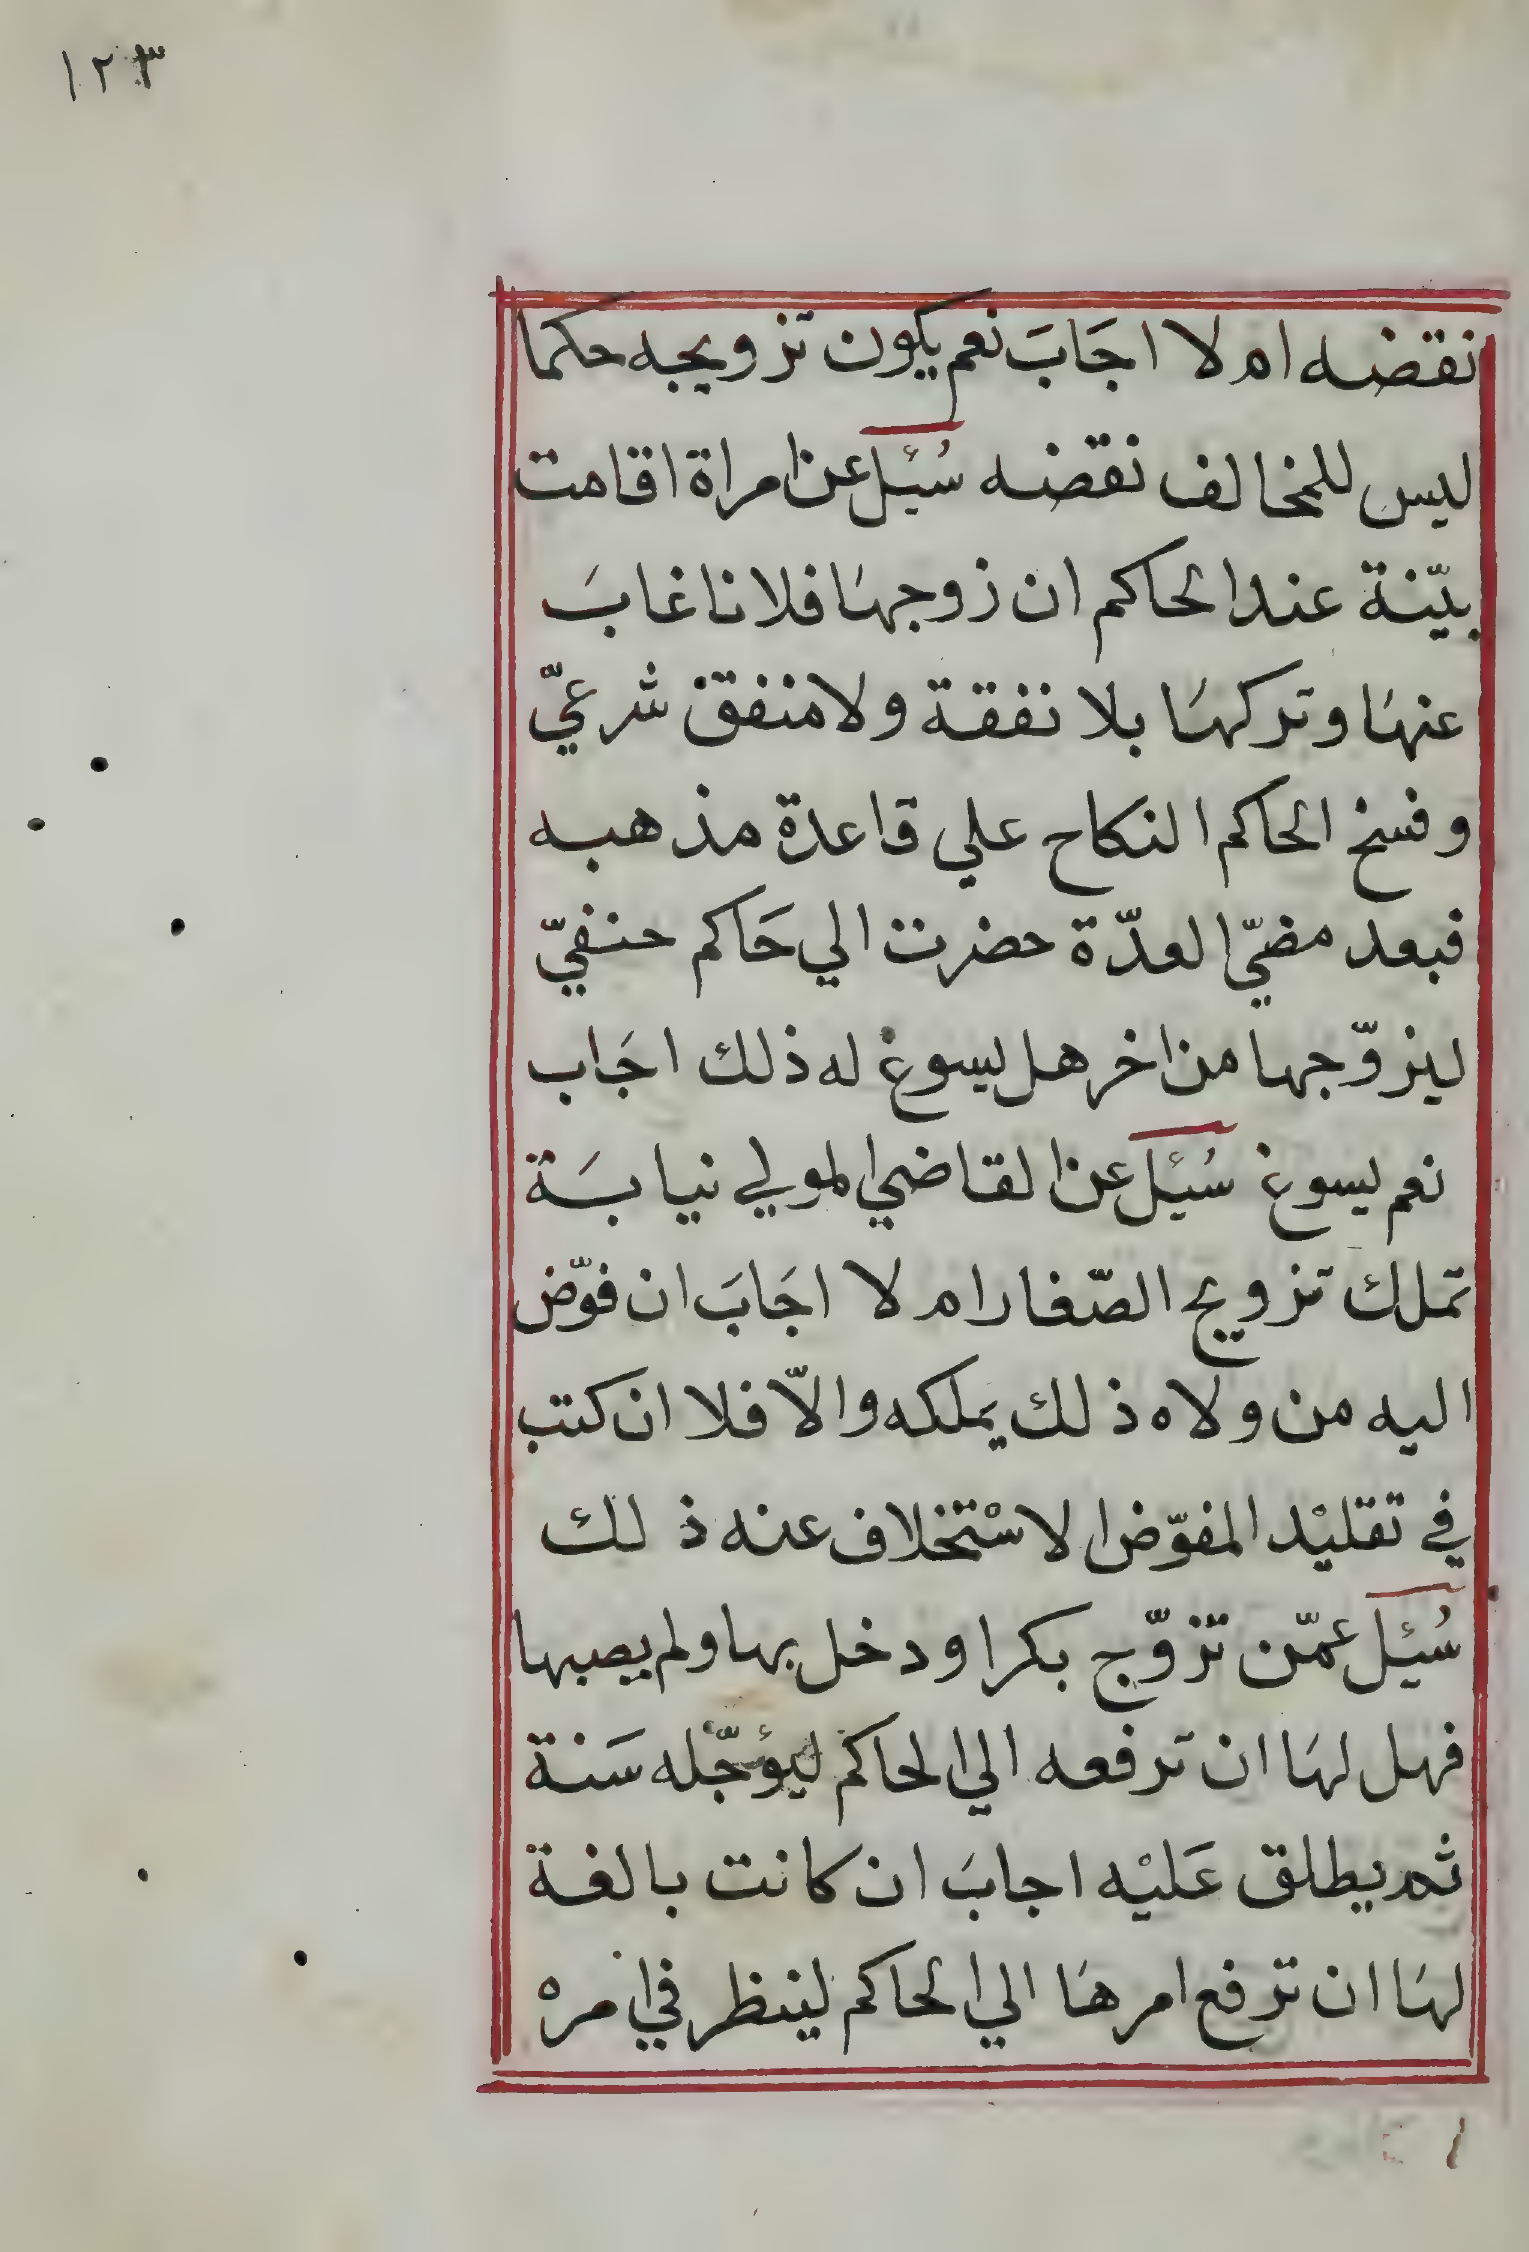 ١٢٣
نقضه ام لا اجَابَ نعم يكون تزويجه حكما
ليس للمخالف نقضه سُئِل عن امراة اقامت
بيّنة عند الحاكم ان زوجهَا فلانا غابَ
عنهَا وتركهَا بلا نفقة ولا منفق شرعيّ
وفسخ الحاكم النكاح علي قاعدة مذهبه
فبعد مضيّ العدّة حضرت الي حَاكم حنفيّ
ليزوّجها من اخر هل يسوغ له ذلك اجَاب
نعم يسوغ سُئِلَ عن القاضي المولي نيابَة
تملك تزويج الصّغار ام لا اجَابَ ان فوّض
اليه من ولاه ذلك يَملكه والّا فلا ان كتب
في تقليْد المفوّض الاسْتخلاف عنه ذلك
سُئِلَ عمّن تزوّج بكرا ودخل بها ولم يصبها
فهل لهَا ان ترفعه الي الحاكم ليؤجّله سَنة
ثم يطلق عَليْه اجابَ ان كانت بالغة
لهَا ان ترفع امرهَا الي الحاكم لينظر في امره